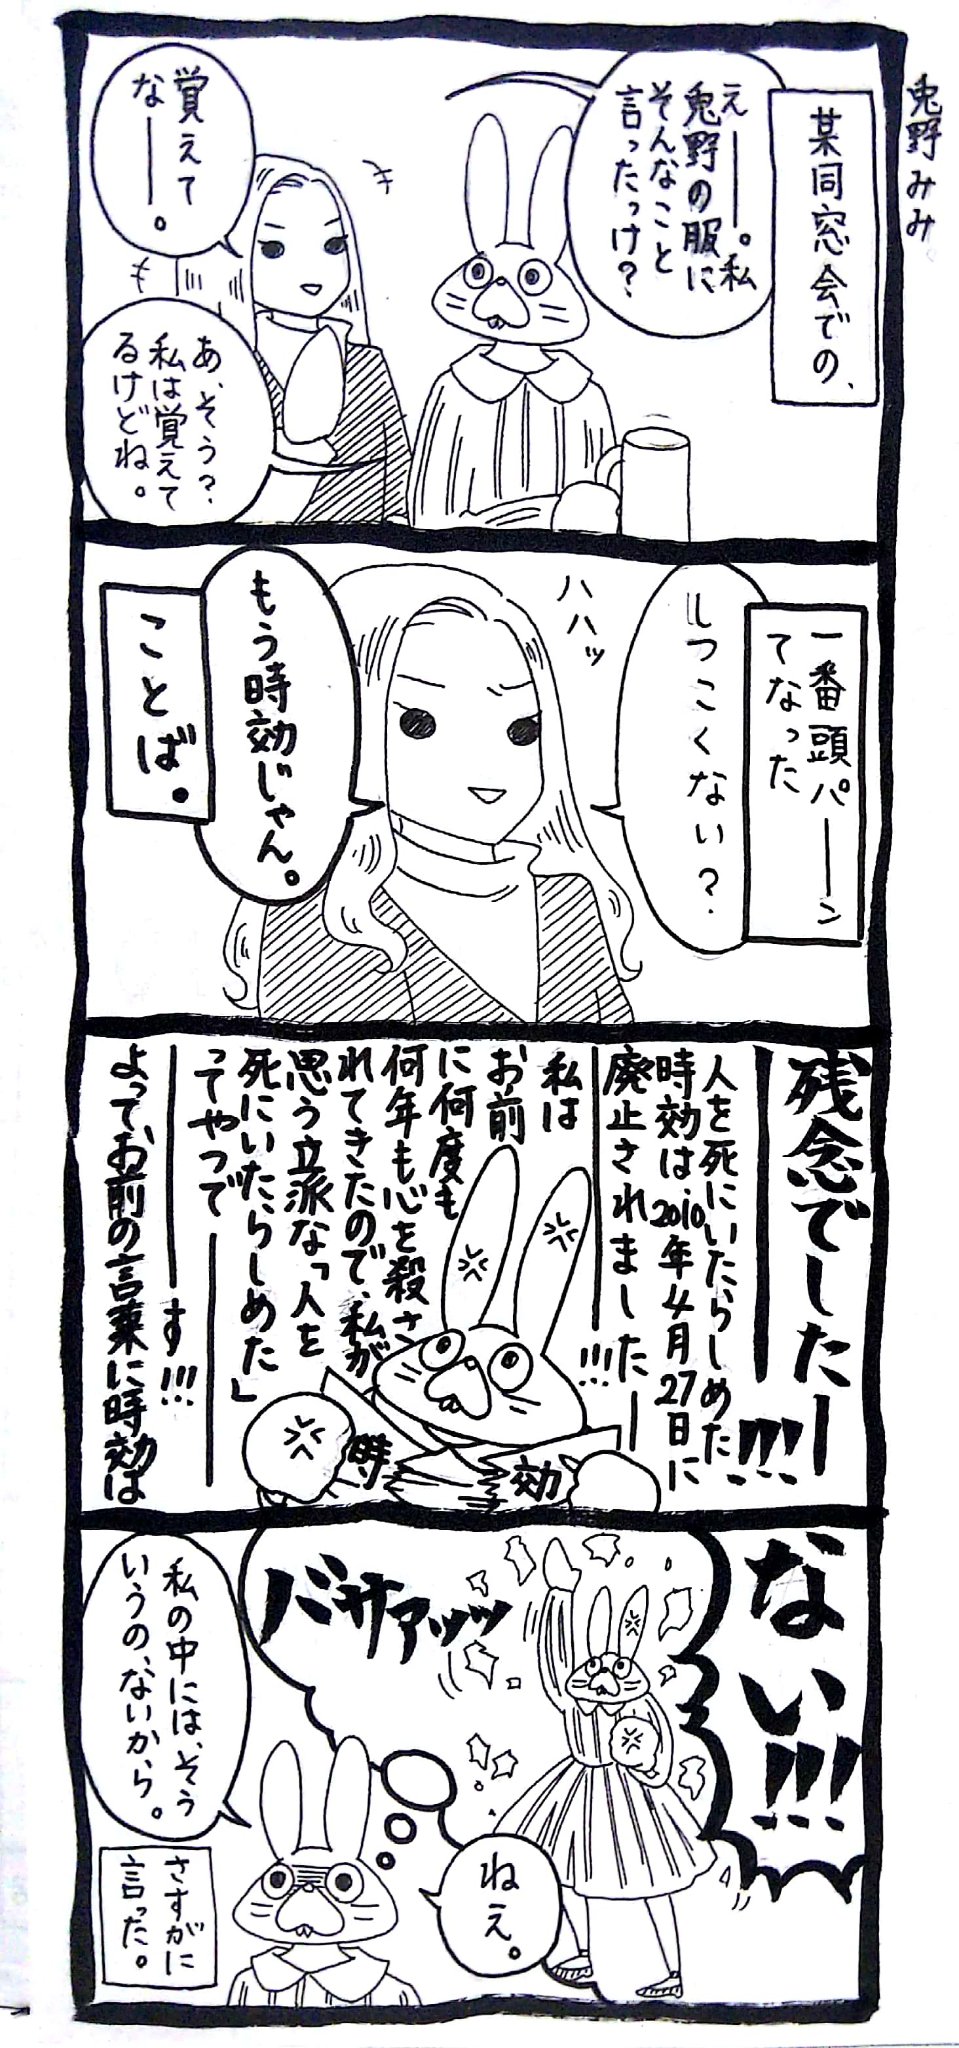 兎野みみ
某同窓会での、
え――。私
兎野の服に
そんなこと
言ったっけ?
覚えて
な――。
あ、そう?
私は覚えて
るけどね。
一番頭パ――ン
てなった
しつこくない?
ハハッ
もう時効じゃん。
ことば。
残念でしたー
――!!!!
人を死にいたらしめた
時効は、2010年4月27日に
廃止されましたー
――!!!
私は
お前
に何度も
何年も心を殺さ
れてきたので、私が
思う立派な「人を
死にいたらしめた」
ってやつで――
――す!!!
よってお前の言葉に時効は
時
効
ない!!!
バサアッッ
ねえ。
私の中には、そう
いうの、ないから。
さすがに
言った。